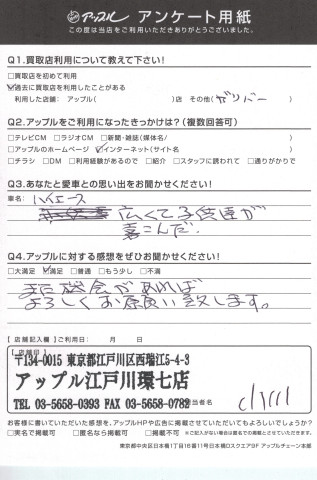 アップル アンケート用紙
この度は当店をご利用いただきありがとうございました。
Q1.買取店利用について教えて下さい!
□買取店を初めて利用
☑過去に買取店を利用したことがある
利用した店舗: アップル( )店 その他(ガリバー)
Q2.アップルをご利用になったきっかけは?(複数回答可)
□テレビCM □ラジオCM □新聞・雑誌(媒体名/ )
□アップルのホームページ ☑インターネット(サイト名 )
□チラシ □DM □利用経験があるので □紹介 □スタッフに誘われて □通りがかりで
Q3.あなたと愛車との思い出をお聞かせください!
車名: ハイエース
広くて子供達が
喜こんだ.
Q4.アップルに対する感想をぜひお聞かせください!
□大満足 ☑満足 □普通 □もう少し □不満
また機会があれば
よろしくお願い致します。
【店舗記入欄】ご利用日: 月 日
【店舗印】
〒134-0015 東京都江戸川区西瑞江5-4-3
アップル江戸川環七店
TEL 03-5658-0393 FAX 03-5658-0782
担当者名
お客様に書いていただいた感想を、アップルHPや広告に掲載させていただいてもよろしいでしょうか?
□実名で掲載可 □匿名なら掲載可 □掲載不可 ※ご記入がない場合は匿名での掲載とさせていただきます。
東京都中央区日本橋1丁目16番11号日本橋Dスクエア9F アップルチェーン本部